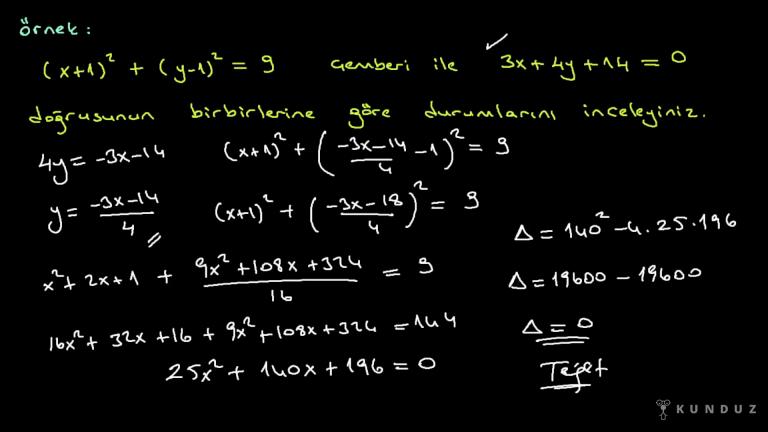 örnek:
(x+1)² + (y-1)² = 9 çemberi ile 3x+4y+14=0
doğrusunun birbirlerine göre durumlarını inceleyiniz.
4y = -3x-14
y = (-3x-14)/4
(x+1)² + ((-3x-14)/4 - 1)² = 9
(x+1)² + ((-3x-18)/4)² = 9
x² + 2x + 1 + (9x² + 108x + 324)/16 = 9
16x² + 32x + 16 + 9x² + 108x + 324 = 144
25x² + 140x + 196 = 0
Δ = 140² - 4.25.196
Δ = 19600 - 19600
Δ = 0
Teğet
KUNDUZ